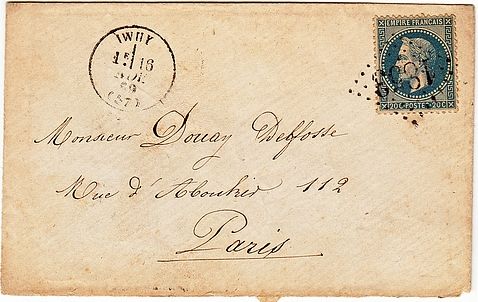 IWUY
1E 16
NOV.
69
(57)
EMPIRE FRANÇAIS
20C POSTE 20C
Monsieur Douay Delfosse
Rue d'Aboukir 112
Paris